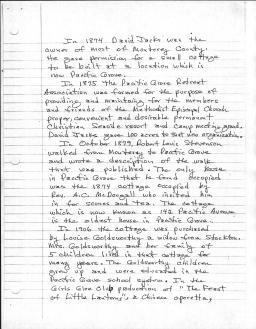 In 1874 David Jacks was the
owner of most of Monterey County.
He gave permission for a small cottage
to be built at a location which is
now Pacific Grove.
In 1875 The Pacific Grove Retreat
Association was formed for the purpose of
providing and maintaining for the members
and friends of the Methodist Episcopal Church
proper, convenient and desirable permanent
Christian Seaside resort and Camp meeting ground.
David Jacks gave 100 acres to set up the organization.
In October 1879, Robert Louis Stevenson
walked from Monterey to Pacific Grove
and wrote a description of the walk
that was published. The only house
in Pacific Grove that he found occupied
was the 1874 cottage occupied by
Rev. A.C. McDougall who invited him
in for scones and tea. The cottage
which is now known as 142 Pacific Avenue
is the oldest house in Pacific Grove.
In 1906 the cottage was purchased
by Louise Goldsworthy a widow from Stockton.
Mrs. Goldsworthy and her family of
5 children lived in that cottage for
many years. The Goldsworthy children
grew up and were educated in the
Pacific Grove school system. In the
Girls Glee Club production of "The Feast
of Little Lanterns" a Chinese operetta,